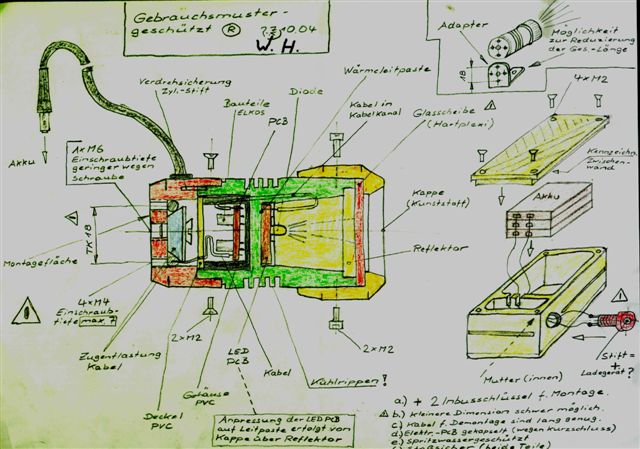 Gebrauchsmuster-
geschützt ®
W. H.
Verdrehsicherung
Zyl.-Stift
Bauteile
ELKOS
PCB
Diode
Wärmeleitpaste
Kabel in
Kabelkanal
Glasscheibe
(Hartplexi)
Adapter
18
Möglichkeit
zur Reduzierung
der Ges.-Länge
4xM2
Kennzeichn.
Zwischen-
wand
Akku
Akku
1xM6
Einschraubtiefe
geringer wegen
Schraube
TK18
Montagefläche
4xM4
Einschraub-
tiefe max. 7
Zugentlastung
Kabel
Deckel
PVC
Gehäuse
PVC
2xM2
LED
PCB
Kabel
Kühlrippen!
2xM2
Kappe
(Kunststoff)
Reflektor
Anpressung der LED PCB
auf Leitpaste erfolgt von
Kappe über Reflektor
Mutter (innen)
Stift = +
Ladegerät?
a.) + 2 Inbusschlüssel f. Montage.
b.) kleinere Dimension schwer möglich.
c.) Kabel f. Demontage sind lang genug.
d.) Elektr.-PCB gekapselt (wegen Kurzschluss)
e.) Spritzwassergeschützt
(beide Teile)